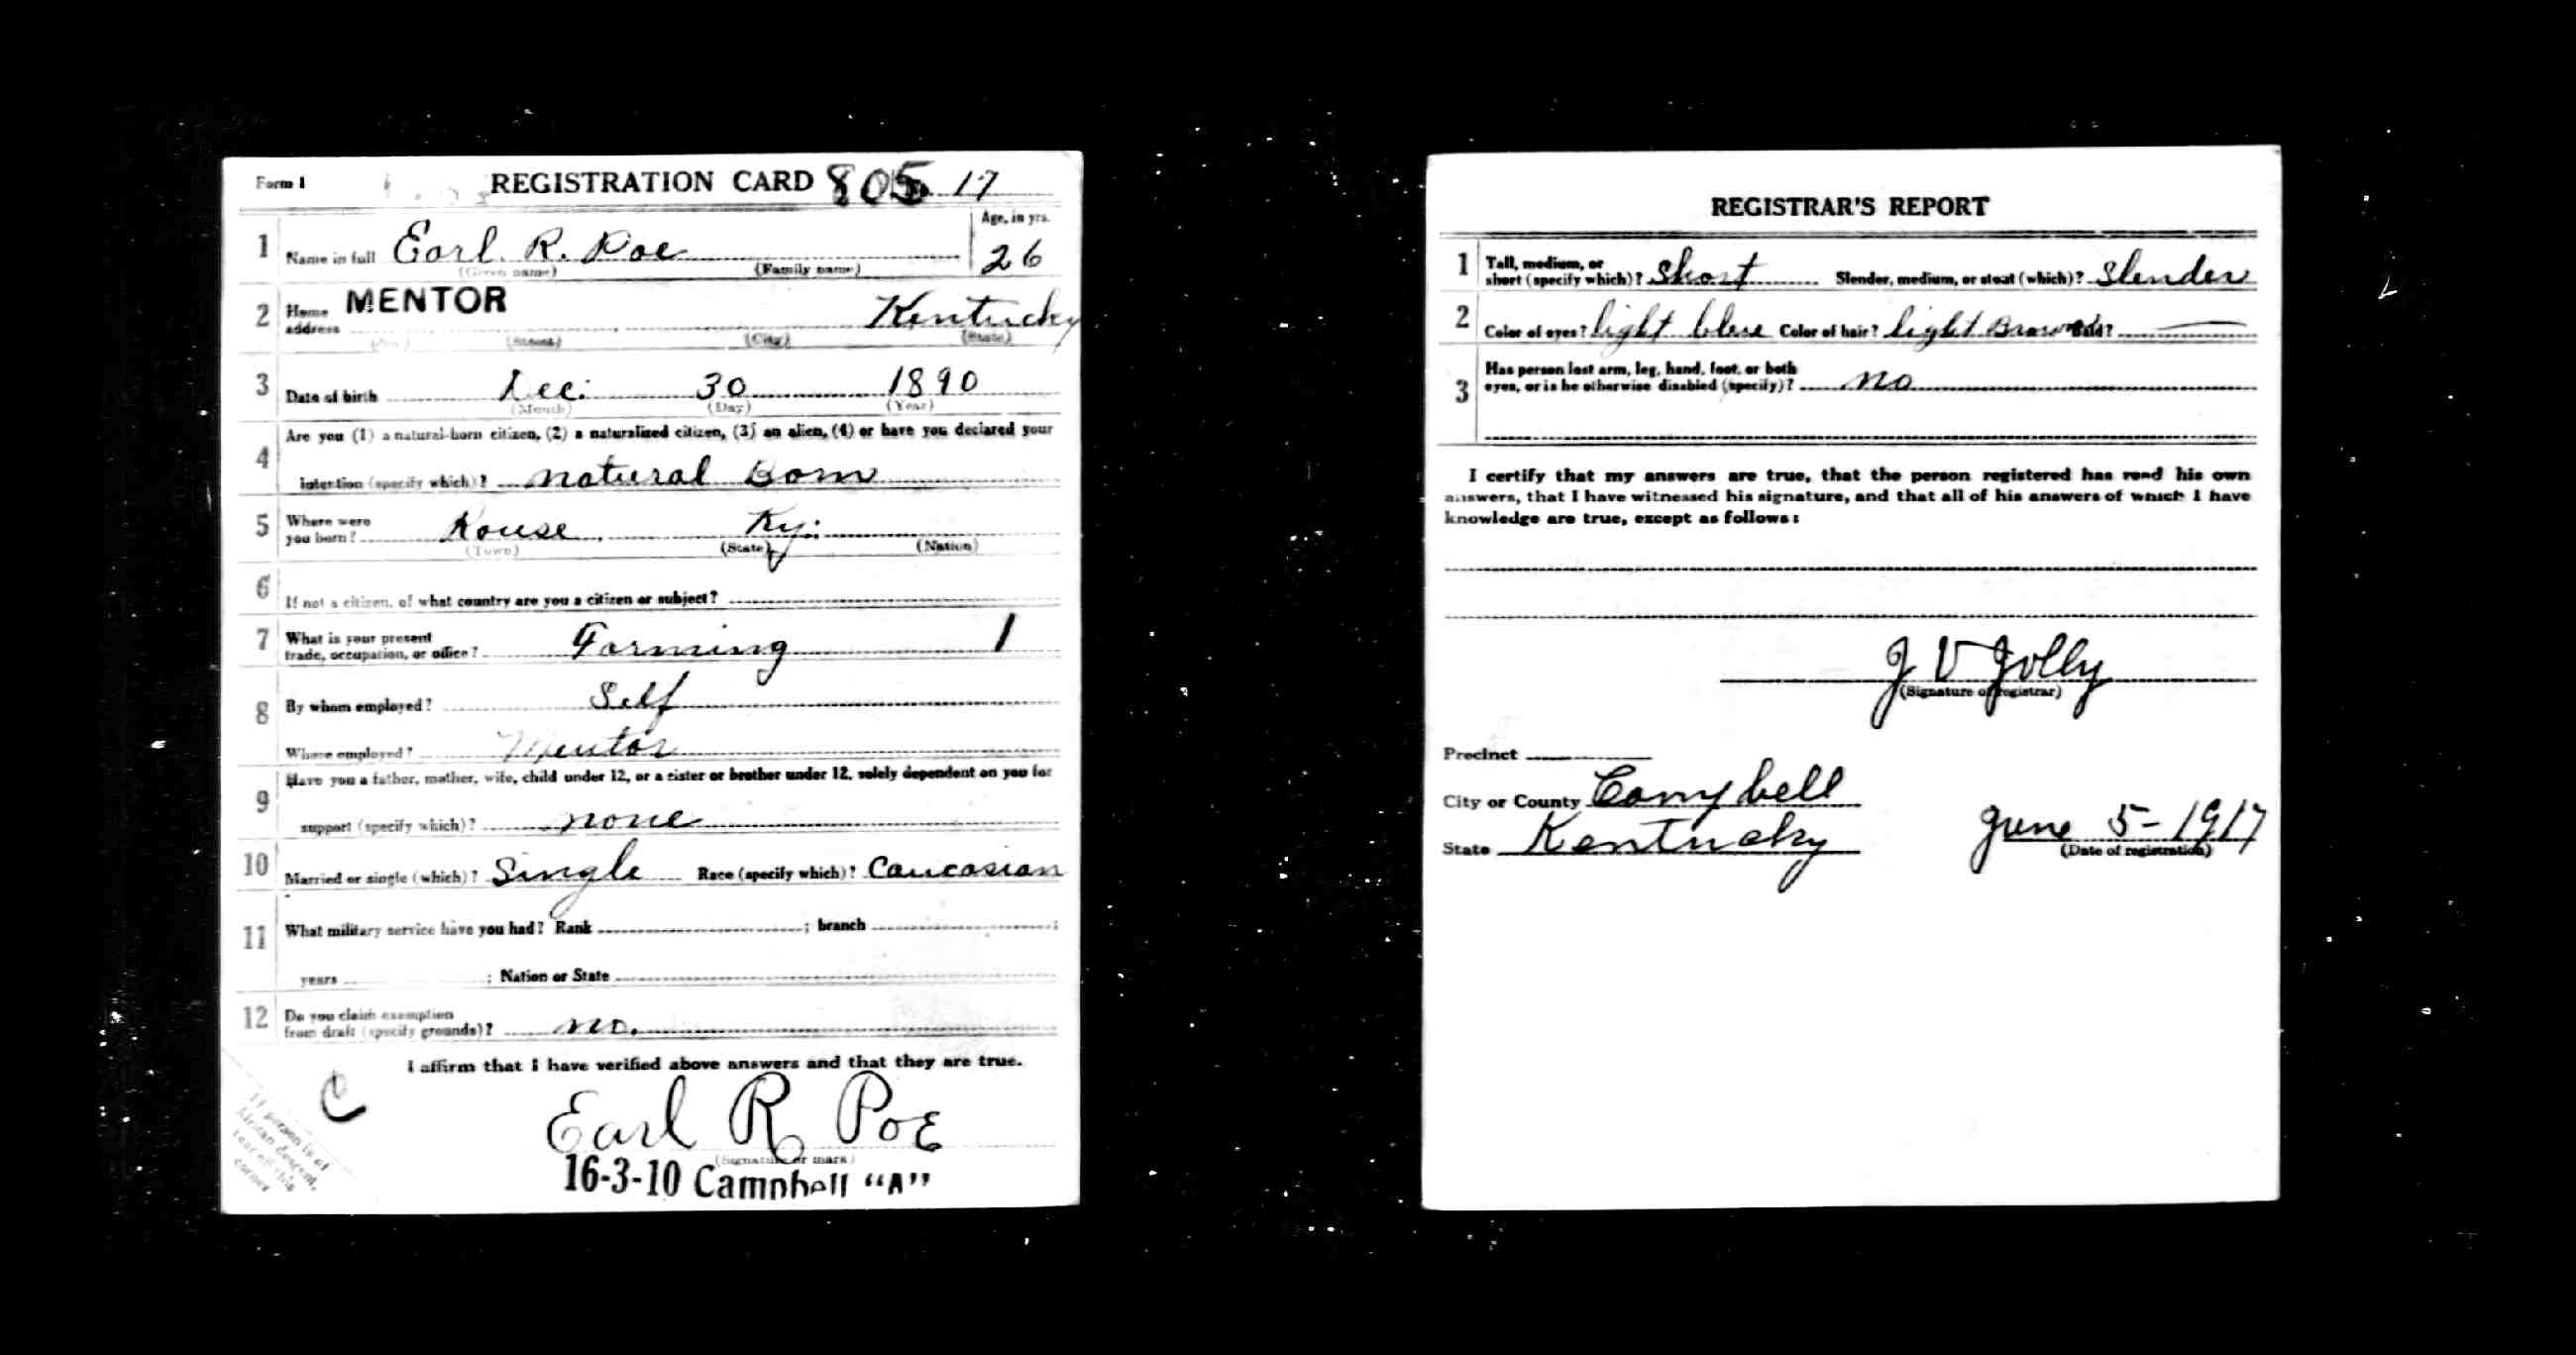 Form 1 REGISTRATION CARD 805 17
1 Name in full Earl. R. Poe Age, in yrs. 26
(Given name) (Family name)
2 Home address MENTOR Kentucky
(No.) (Street) (City) (State)
3 Date of birth Dec. 30 1890
(Month) (Day) (Year)
4 Are you (1) a natural-born citizen, (2) a naturalized citizen, (3) an alien, (4) or have you declared your
intention (specify which)? natural Born
5 Where were you born? Kouse Ky.
(Town) (State) (Nation)
6 If not a citizen, of what country are you a citizen or subject?
7 What is your present
trade, occupation, or office? Farming 1
8 By whom employed? Self
Where employed? Mentor
9 Have you a father, mother, wife, child under 12, or a sister or brother under 12, solely dependent on you for
support (specify which)? none
10 Married or single (which)? Single Race (specify which)? Caucasian
11 What military service have you had? Rank ; branch ;
years ; Nation or State
12 Do you claim exemption
from draft (specify grounds)? no.
I affirm that I have verified above answers and that they are true.
C
Earl R Poe
(Signature or mark)
If person is of
African descent,
tear off this
corner
16-3-10 Campbell "A"
REGISTRAR'S REPORT
1 Tall, medium, or
short (specify which)? Short Slender, medium, or stout (which)? Slender
2 Color of eyes? light blue Color of hair? light Brown Bald?
3 Has person lost arm, leg, hand, foot, or both
eyes, or is he otherwise disabled (specify)? no
I certify that my answers are true, that the person registered has read his own
answers, that I have witnessed his signature, and that all of his answers of which I have
knowledge are true, except as follows:
J V Jolly
(Signature of registrar)
Precinct
City or County Campbell
State Kentucky June 5-1917
(Date of registration)